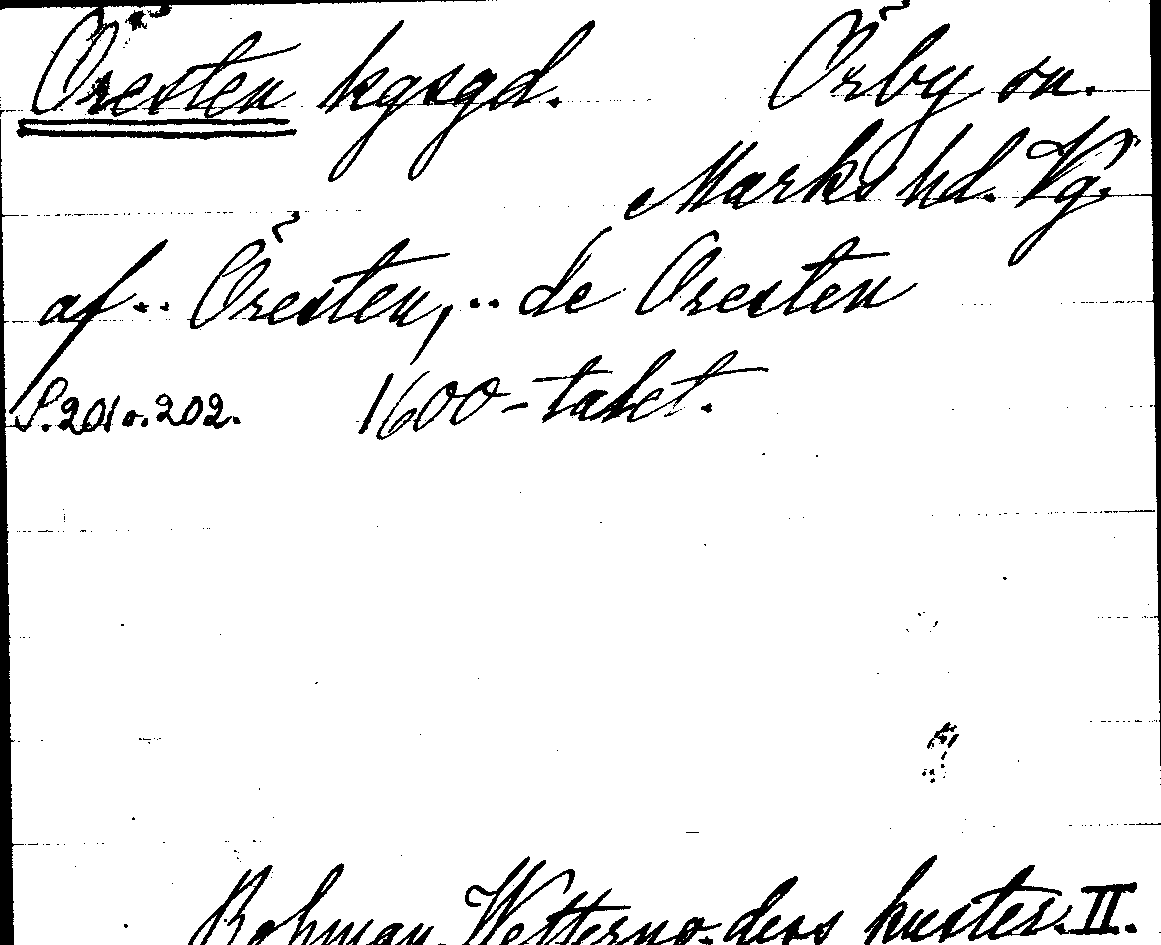 Öresten kgsgd. Örby sn.
Marks hd. Vg.
af.. Öresten, .. de Oresten
S. 201 o. 202. 1600-talet.
Bohman, Wettern o. dess kuster. II.